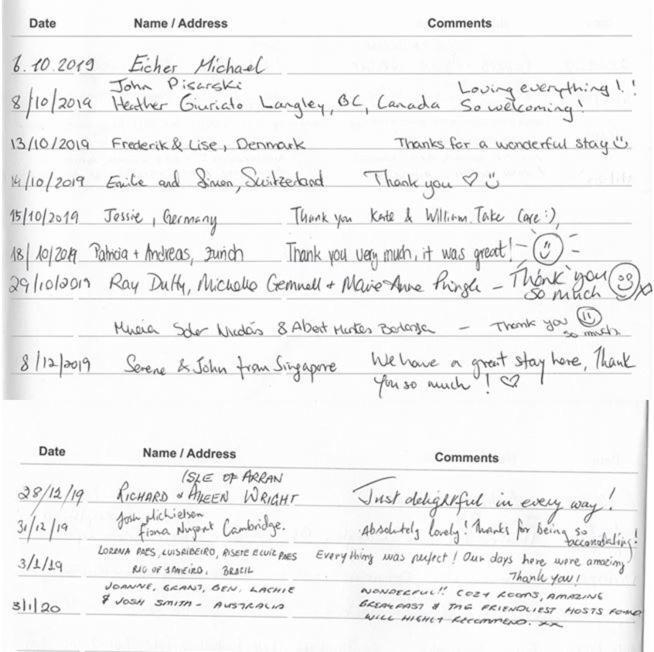 Date Name / Address Comments
6.10.2019 Eicher Michael
John Pisarski Loving everything!!
8/10/2019 Heather Giuriato Langley, BC, Canada So welcoming!
13/10/2019 Frederik & Lise, Denmark Thanks for a wonderful stay
14/10/2019 Emilie and Simon, Switzerland Thank you ♡
15/10/2019 Jessie, Germany Thank you Kate & William. Take Care :)
18/10/2019 Patricia + Andreas, Zurich Thank you very much, it was great!
29/10/2019 Ray Duffy, Michelle Gemmell + Marie-Anne - Thank you
so much
& Albert - Thank you
so much
8/12/2019 Serene & John from Singapore We have a great stay here, Thank
you so much! ♡
Date Name / Address Comments
ISLE OF ARRAN
28/12/19 RICHARD & AILEEN WRIGHT Just delightful in every way!
31/12/19 Josh Michielsen
Fiona Nugent Cambridge. Absolutely lovely! Thanks for being so
accomodating!
3/1/19 LORENA PAES, LUIS RIBEIRO, PAES Everything was perfect! Our days here were amazing
RIO DE JANEIRO, BRAZIL Thank you!
JOANNE, GRANT, BEN, LACHIE WONDERFUL!! COZY ROOMS, AMAZING
3/1/20 & JOSH SMITH - AUSTRALIA BREAKFAST & THE FRIENDLIEST HOSTS FOUND
WILL HIGHLY RECOMMEND. XX